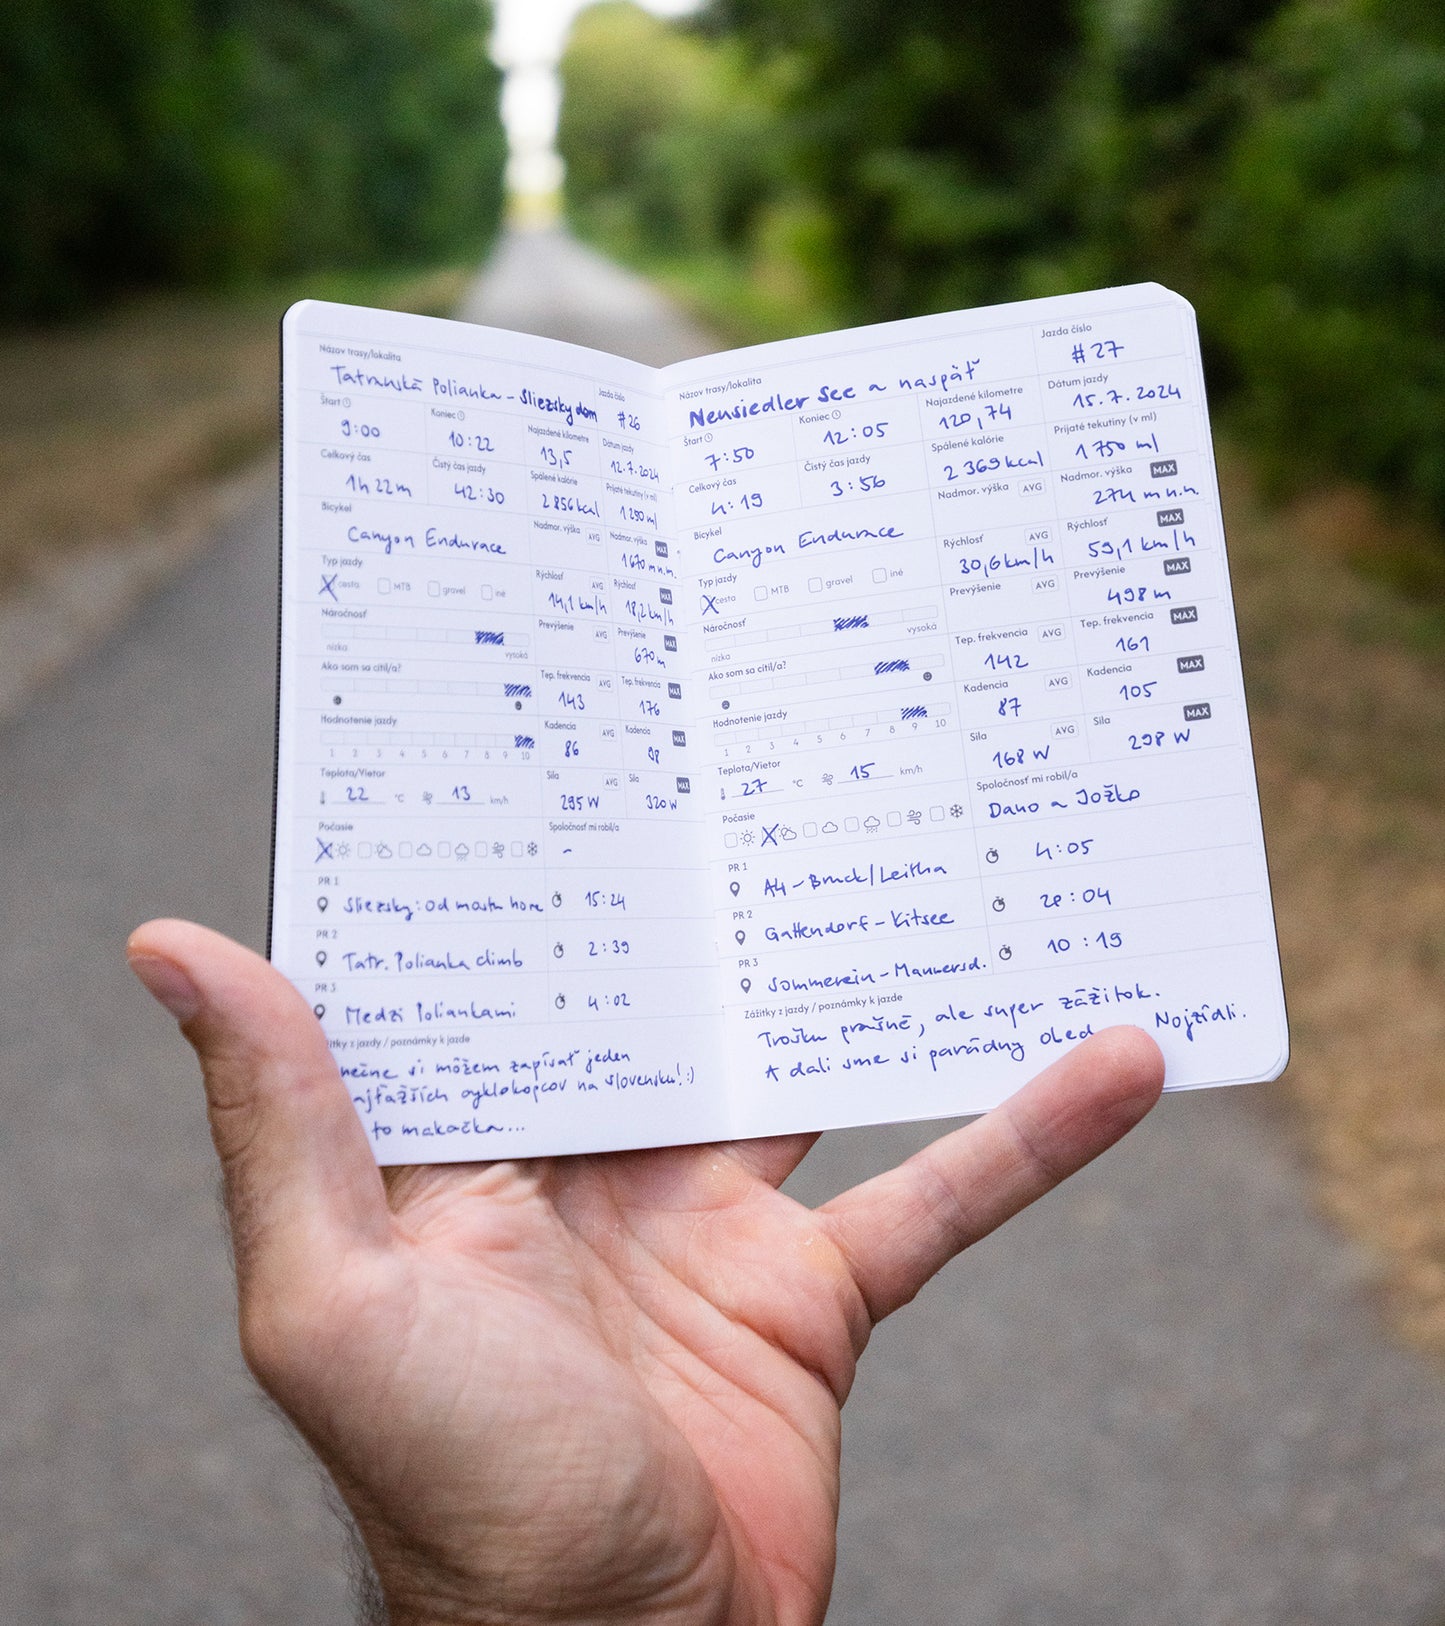 Názov trasy/lokalita
Tatranská Polianka - Sliezsky dom
Jazda číslo
#26
Štart
9:00
Koniec
10:22
Najazdené kilometre
13,5
Dátum jazdy
12.7.2024
Celkový čas
1h 22m
Čistý čas jazdy
42:30
Spálené kalórie
2 856 kcal
Prijaté tekutiny (v ml)
1 250 ml
Bicykel
Canyon Endurace
Nadmor. výška AVG
Nadmor. výška MAX
1670 m n.m.
Typ jazdy
X cesta MTB gravel iné
Rýchlosť AVG
14,1 km/h
Rýchlosť MAX
18,2 km/h
Náročnosť
nízka vysoká
Prevýšenie AVG
Prevýšenie MAX
670 m
Ako som sa cítil/a?
Tep. frekvencia AVG
143
Tep. frekvencia MAX
176
Hodnotenie jazdy
1 2 3 4 5 6 7 8 9 10
Kadencia AVG
86
Kadencia MAX
98
Teplota/Vietor
22 °C 13 km/h
Sila AVG
295 W
Sila MAX
320 W
Počasie
X
Spoločnosť mi robil/a
-
PR 1
Sliezsky: od mostu hore 15:24
PR 2
Tatr. Polianka climb 2:39
PR 3
Medzi Poliankami 4:02
žitky z jazdy / poznámky k jazde
nečne si môžem zapísať jeden
ajťažších cyklokopcov na Slovensku! :)
to makačka...
Názov trasy/lokalita
Neusiedler See a naspäť
Jazda číslo
#27
Štart
7:50
Koniec
12:05
Najazdené kilometre
120,74
Dátum jazdy
15.7.2024
Celkový čas
4:19
Čistý čas jazdy
3:56
Spálené kalórie
2 369 kcal
Prijaté tekutiny (v ml)
1 750 ml
Bicykel
Canyon Endurace
Nadmor. výška AVG
Nadmor. výška MAX
274 m n.m.
Typ jazdy
X cesta MTB gravel iné
Rýchlosť AVG
30,6 km/h
Rýchlosť MAX
59,1 km/h
Náročnosť
nízka vysoká
Prevýšenie AVG
Prevýšenie MAX
498 m
Ako som sa cítil/a?
Tep. frekvencia AVG
142
Tep. frekvencia MAX
161
Hodnotenie jazdy
1 2 3 4 5 6 7 8 9 10
Kadencia AVG
87
Kadencia MAX
105
Teplota/Vietor
27 °C 15 km/h
Sila AVG
168 W
Sila MAX
298 W
Počasie
X
Spoločnosť mi robil/a
Dano a Jožko
PR 1
A4 - Bruck/Leitha 4:05
PR 2
Gattendorf - Kitsee 20:04
PR 3
Sommerein - Mannersd. 10:19
Zážitky z jazdy / poznámky k jazde
Trošku prašné, ale super zážitok.
A dali sme si parádny obed Nojzídli.